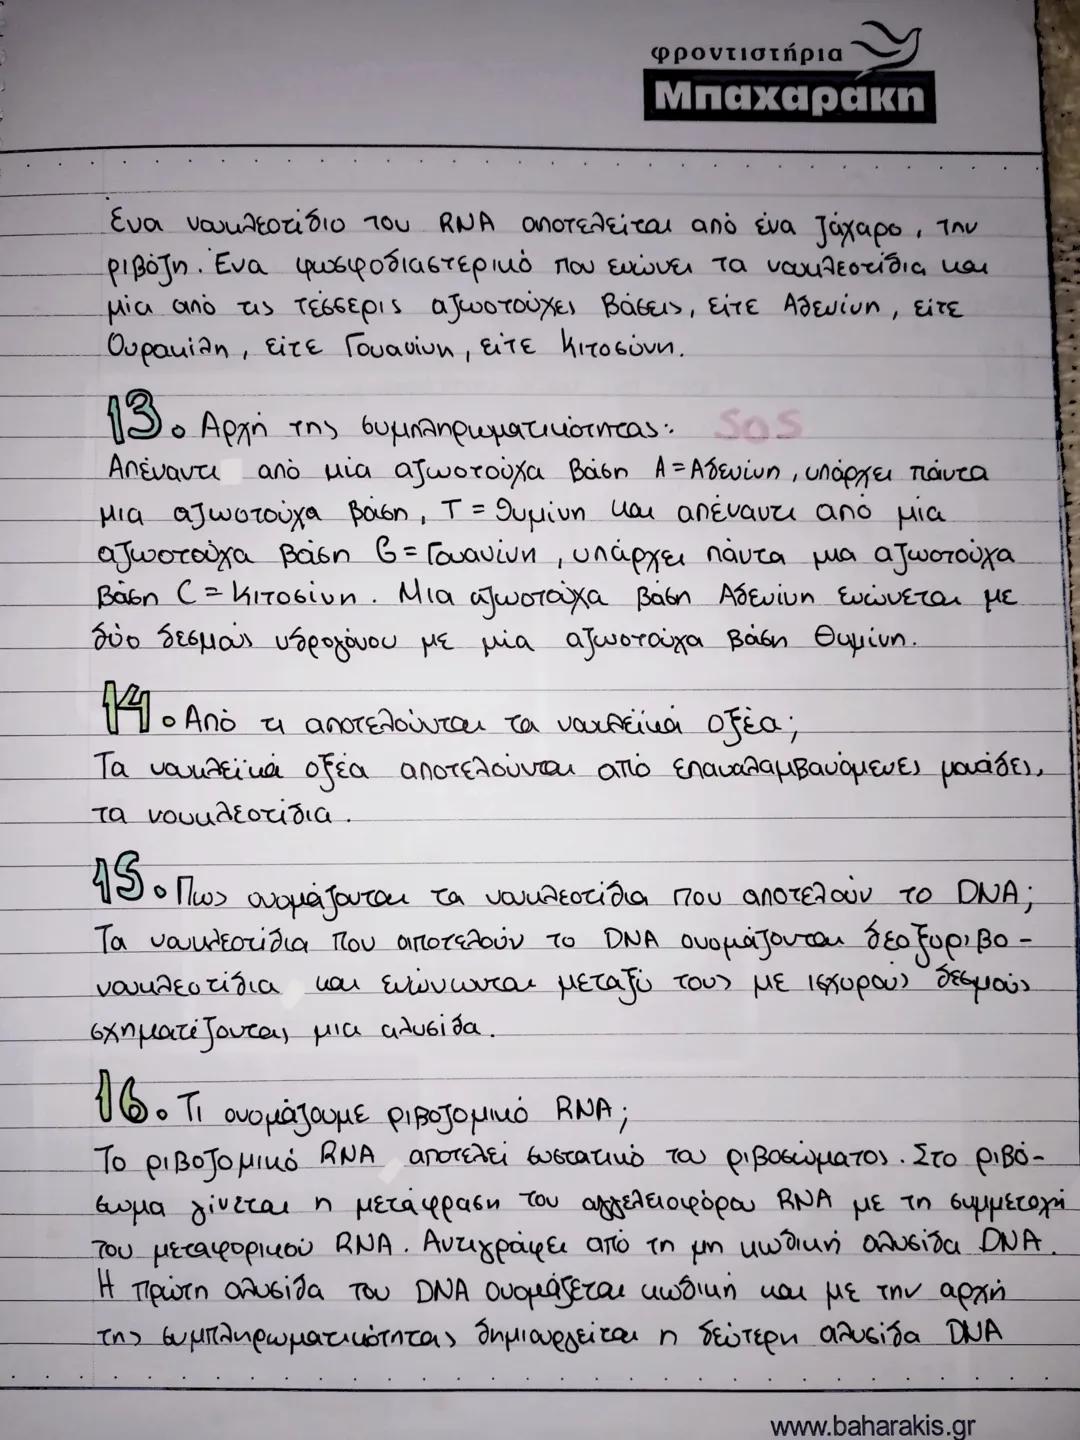 φροντιστήρια
Μπαχαράκη
Ενα νουκλεοτίδιο του RNA αποτελείται από ένα ζάχαρο, την
ριβόζη. Ένα φωσφοδιαστερικό που ενώνει τα νουκλεοτίδια και
μία από τις τέσσερις αζωτούχες βάσεις, είτε Αδενίνη, είτε
Ουρακίλη, είτε Γουανίνη, είτε κιτοσύνη.
13. Αρχή της συμπληρωματικότητας: SOS
Απέναντι από μία αζωοτούχα βάση A = Αδενίνη, υπάρχει πάντα
μια αζωοτούχα βάση, T = θυμίνη και απέναντι από μία
αζωοτούχα βάση G = Γουανίνη, υπάρχει πάντα μια αζωοτούχα
βάση C = κιτοσίνη. Μια αζωοτούχα βάση Αδενίνη ενώνεται με
δύο δεσμούς υδρογόνου με μία αζωοτούχα βάση Θυμίνη.
14. Από τι αποτελούνται τα νουκλεϊκά οξέα;
Τα νουκλεϊκά οξέα αποτελούνται από επαναλαμβανόμενες μονάδες,
τα νουκλεοτίδια.
15. Πως ονομάζονται τα νουκλεοτίδια που αποτελούν το DNA;
Τα νουκλεοτίδια που αποτελούν το DNA ονομάζονται δεοξυριβο-
νουκλεοτίδια και ενώνωνται μεταξύ τους με ισχυρούς δεσμούς
σχηματίζοντας μια αλυσίδα.
16. Τι ονομάζουμε ριβοζομικό RNA;
Το ριβοζομικό RNA αποτελεί συστατικό του ριβοσώματος. Στο ριβό-
σωμα γίνεται η μετάφραση του αγγελειοφόρου RNA με τη συμμετοχή
του μεταφορικού RNA. Αντιγράφει από τη μη κωδική αλυσίδα DNA.
Η πρώτη αλυσίδα του DNA ονομάζεται κωδική και με την αρχή
της συμπληρωματικότητας δημιουργείται η δεύτερη αλυσίδα DNA
www.baharakis.gr